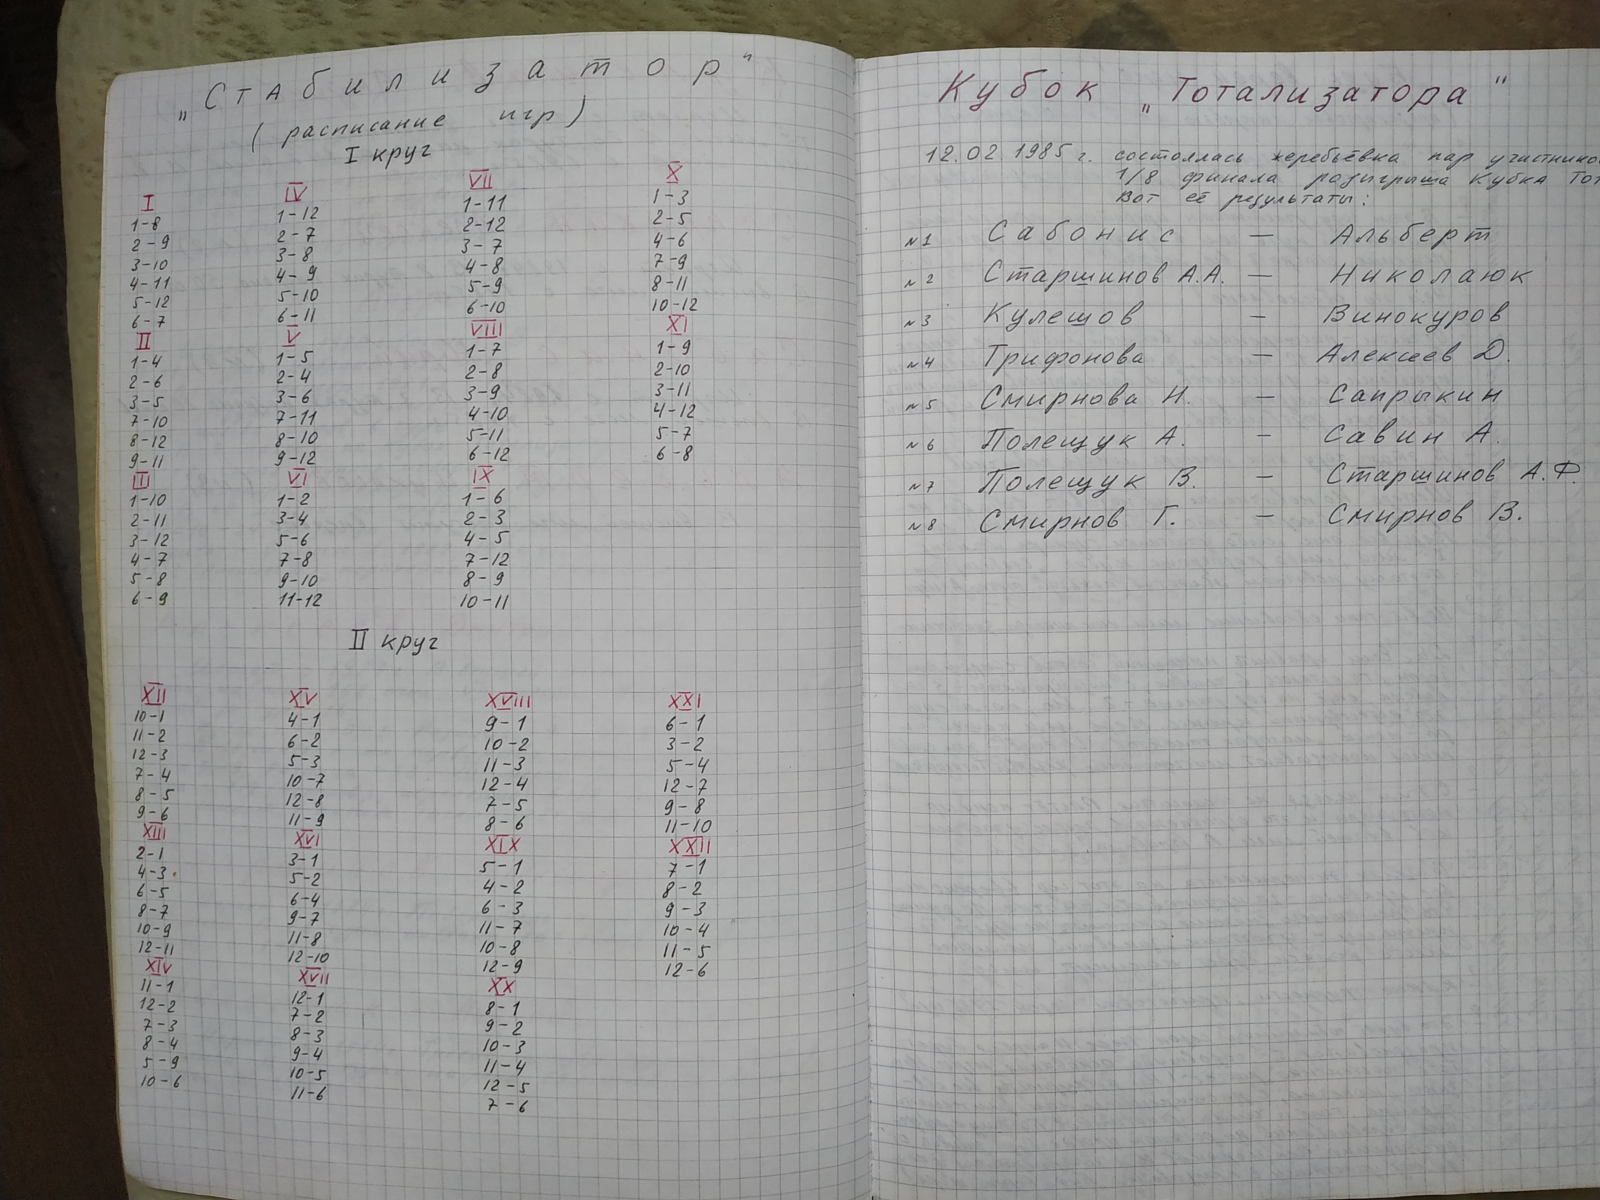 „Стабилизатор"
(расписание игр)
I круг
I
1-8
2-9
3-10
4-11
5-12
6-7
II
1-4
2-6
3-5
7-10
8-12
9-11
III
1-10
2-11
3-12
4-7
5-8
6-9
IV
1-12
2-7
3-8
4-9
5-10
6-11
V
1-5
2-4
3-6
7-11
8-10
9-12
VI
1-2
3-4
5-6
7-8
9-10
11-12
VII
1-11
2-12
3-7
4-8
5-9
6-10
VIII
1-7
2-8
3-9
4-10
5-11
6-12
IX
1-6
2-3
4-5
7-12
8-9
10-11
X
1-3
2-5
4-6
7-9
8-11
10-12
XI
1-9
2-10
3-11
4-12
5-7
6-8
II круг
XII
10-1
11-2
12-3
7-4
8-5
9-6
XIII
2-1
4-3
6-5
8-7
10-9
12-11
XIV
11-1
12-2
7-3
8-4
5-9
10-6
XV
4-1
6-2
5-3
10-7
12-8
11-9
XVI
3-1
5-2
6-4
9-7
11-8
12-10
XVII
12-1
7-2
8-3
9-4
10-5
11-6
XVIII
9-1
10-2
11-3
12-4
7-5
8-6
XIX
5-1
4-2
6-3
11-7
10-8
12-9
XX
8-1
9-2
10-3
11-4
12-5
7-6
XXI
6-1
3-2
5-4
12-7
9-8
11-10
XXII
7-1
8-2
9-3
10-4
11-5
12-6
Кубок „Тотализатора"
12.02.1985 г. состоялась жеребьёвка пар участнико
1/8 финала розыгрыша Кубка Тот
Вот её результаты:
№1 Сабонис — Альберт
№2 Старшинов А.А. — Николаюк
№3 Кулешов — Винокуров
№4 Трифонова — Алексеев Д.
№5 Смирнова Н. — Сапрыкин
№6 Полещук А. — Савин А.
№7 Полещук В. — Старшинов А.Ф.
№8 Смирнов Г. — Смирнов В.